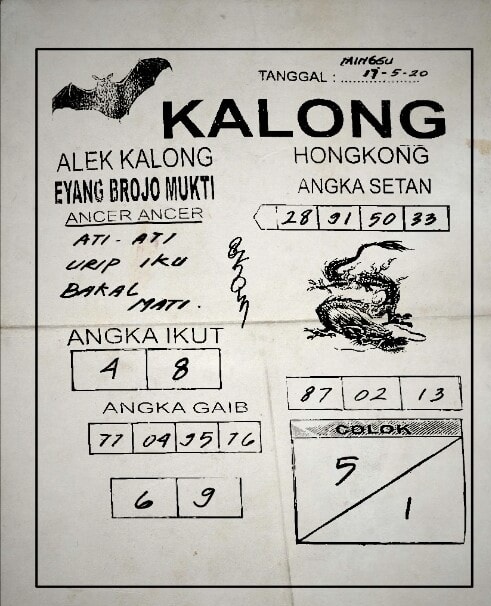 MINGGU
TANGGAL : 17-5-20
KALONG
ALEK KALONG
EYANG BROJO MUKTI
ANCER ANCER
ATI - ATI
URIP IKU
BAKAL
MATI.
HONGKONG
ANGKA SETAN
28 91 50 33
ANGKA IKUT
4 8
ANGKA GAIB
77 04 95 76
6 9
87 02 13
COLOK
5
1